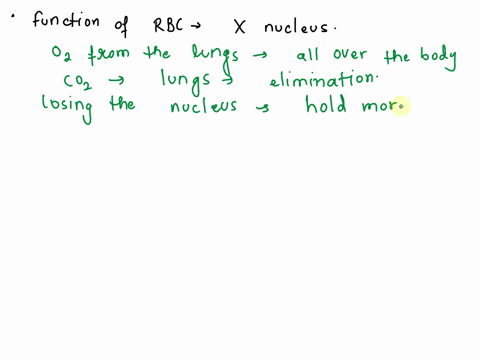 • function of RBC → X nucleus.
O₂ from the lungs → all over the body
CO₂ → lungs → elimination.
losing the nucleus → hold mor